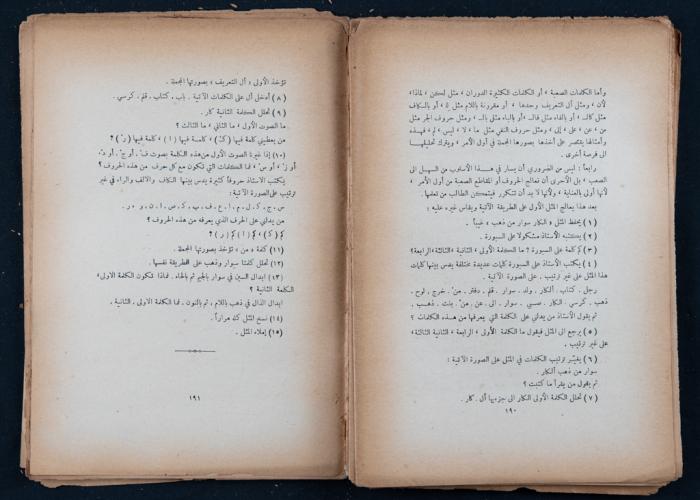 وأما الكلمات الصعبة ، أو الكلمات الكثيرة الدوران ، مثل لكن ، لماذا ،
لأن ، ومثل أل التعريف وحدها ، أو مقرونة باللام مثل لل ، أو بالكاف
مثل كالـ ، أو بالفاء مثل فالـ ، أو بالباء مثل بالـ ، ومثل حروف الجر مثل
من ، عن ، على ، إلى ، ومثل حروف النفي مثل ما ، لا ، ليس ، لم ، فهذه
وأمثالها يقتصر على أخذها بصورها المجملة في أول الأمر ، ويترك تحليلها
الى فرصة أخرى .
رابعاً : ليس من الضروري أن يسار في هذا الأسلوب من السهل الى
الصعب ، بل الأحرى أن تعالج الحروف أو المقاطع الصعبة من أول الأمر ،
لأنها أولى بالعناية ، ولأنها لا بد أن تتكرر فيتمكن الطالب من تعلمها .
بعد هذا يعالج المثل الأول على الطريقة الآتية ويقاس غيره عليه :
(١) يحفظ المثل « الكار سوار من ذهب ، غيباً .
(٢) يكتبه الأستاذ مشكولا على السبورة .
(٣) كم كلمة على السبورة ؟ ما الكلمة الأولى ، الثانية ، الثالثة ، الرابعة ؟
(٤) يكتب الأستاذ على السبورة كلمات عديدة مختلفة يدس بينها كلمات
هذا المثل على غير ترتيب . على الصورة الآتية .
رجل . كتاب . ألكار . ولد . سوار . قلم . دفتر . من . خرج . لوح .
ذهب . كرسي . الكار . صبي . سوار . الى . عن . من . بنت . ذهب .
ثم يقول الأستاذ من يدلني على الكلمة التي يعرفها من هذه الكلمات ؟
(٥) يرجع الى المثل فيقول ما الكلمة الأولى ، الرابعة ، الثانية ، الثالثة ،
على غير ترتيب .
(٦) يغيّر ترتيب الكلمات في المثل على الصورة الآتية :
سوار من ذهب ألكار .
ثم يقول من يقرأ ما كتبت ؟
(٧) تحلل الكلمة الأولى الكار الى جزءيها أل . كار .
١٩٠
تؤخذ الأولى « أل التعريف » بصورتها المجملة .
(٨) أدخل أل على الكلمات الآتية . باب . كتاب . قلم . كرسي .
(٩) تحلل الكلمة الثانية كار .
ما الصوت الأول ، ما الثاني ، ما الثالث ؟
من يعطيني كلمة فيها (ك) ، كلمة فيها (ا) ، كلمة فيها (ر) ؟
(١٠) إذا غيرنا الصوت الأول من هذه الكلمة بصوت ف ، أو ج ، أو د ،
أو ز ، أو س ، فما الكلمات التي تتكون مع كل حرف من هذه الحروف ؟
يكتب الأستاذ حروفاً كثيرة يدس بينها الكاف والألف والراء في غير
ترتيب على الصورة الآتية :
من يدلني على الحرف الذي يعرفه من هذه الحروف ؟
كم (ك) ، كم (ا) كم (ر) ؟
(١١) كلمة « من » تؤخذ بصورتها المجملة .
(١٢) تحلل كلمتا سوار وذهب على الطريقة نفسها .
(١٣) ابدال السين في سوار بالجيم ثم بالحاء . فماذا تكون الكلمة الاولى ،
الكلمة الثانية ؟
ابدال الذال في ذهب باللام ، ثم بالنون . فما الكلمة الاولى ، الثانية .
(١٤) نسخ المثل كله مراراً .
(١٥) إملاء المثل .
١٩١